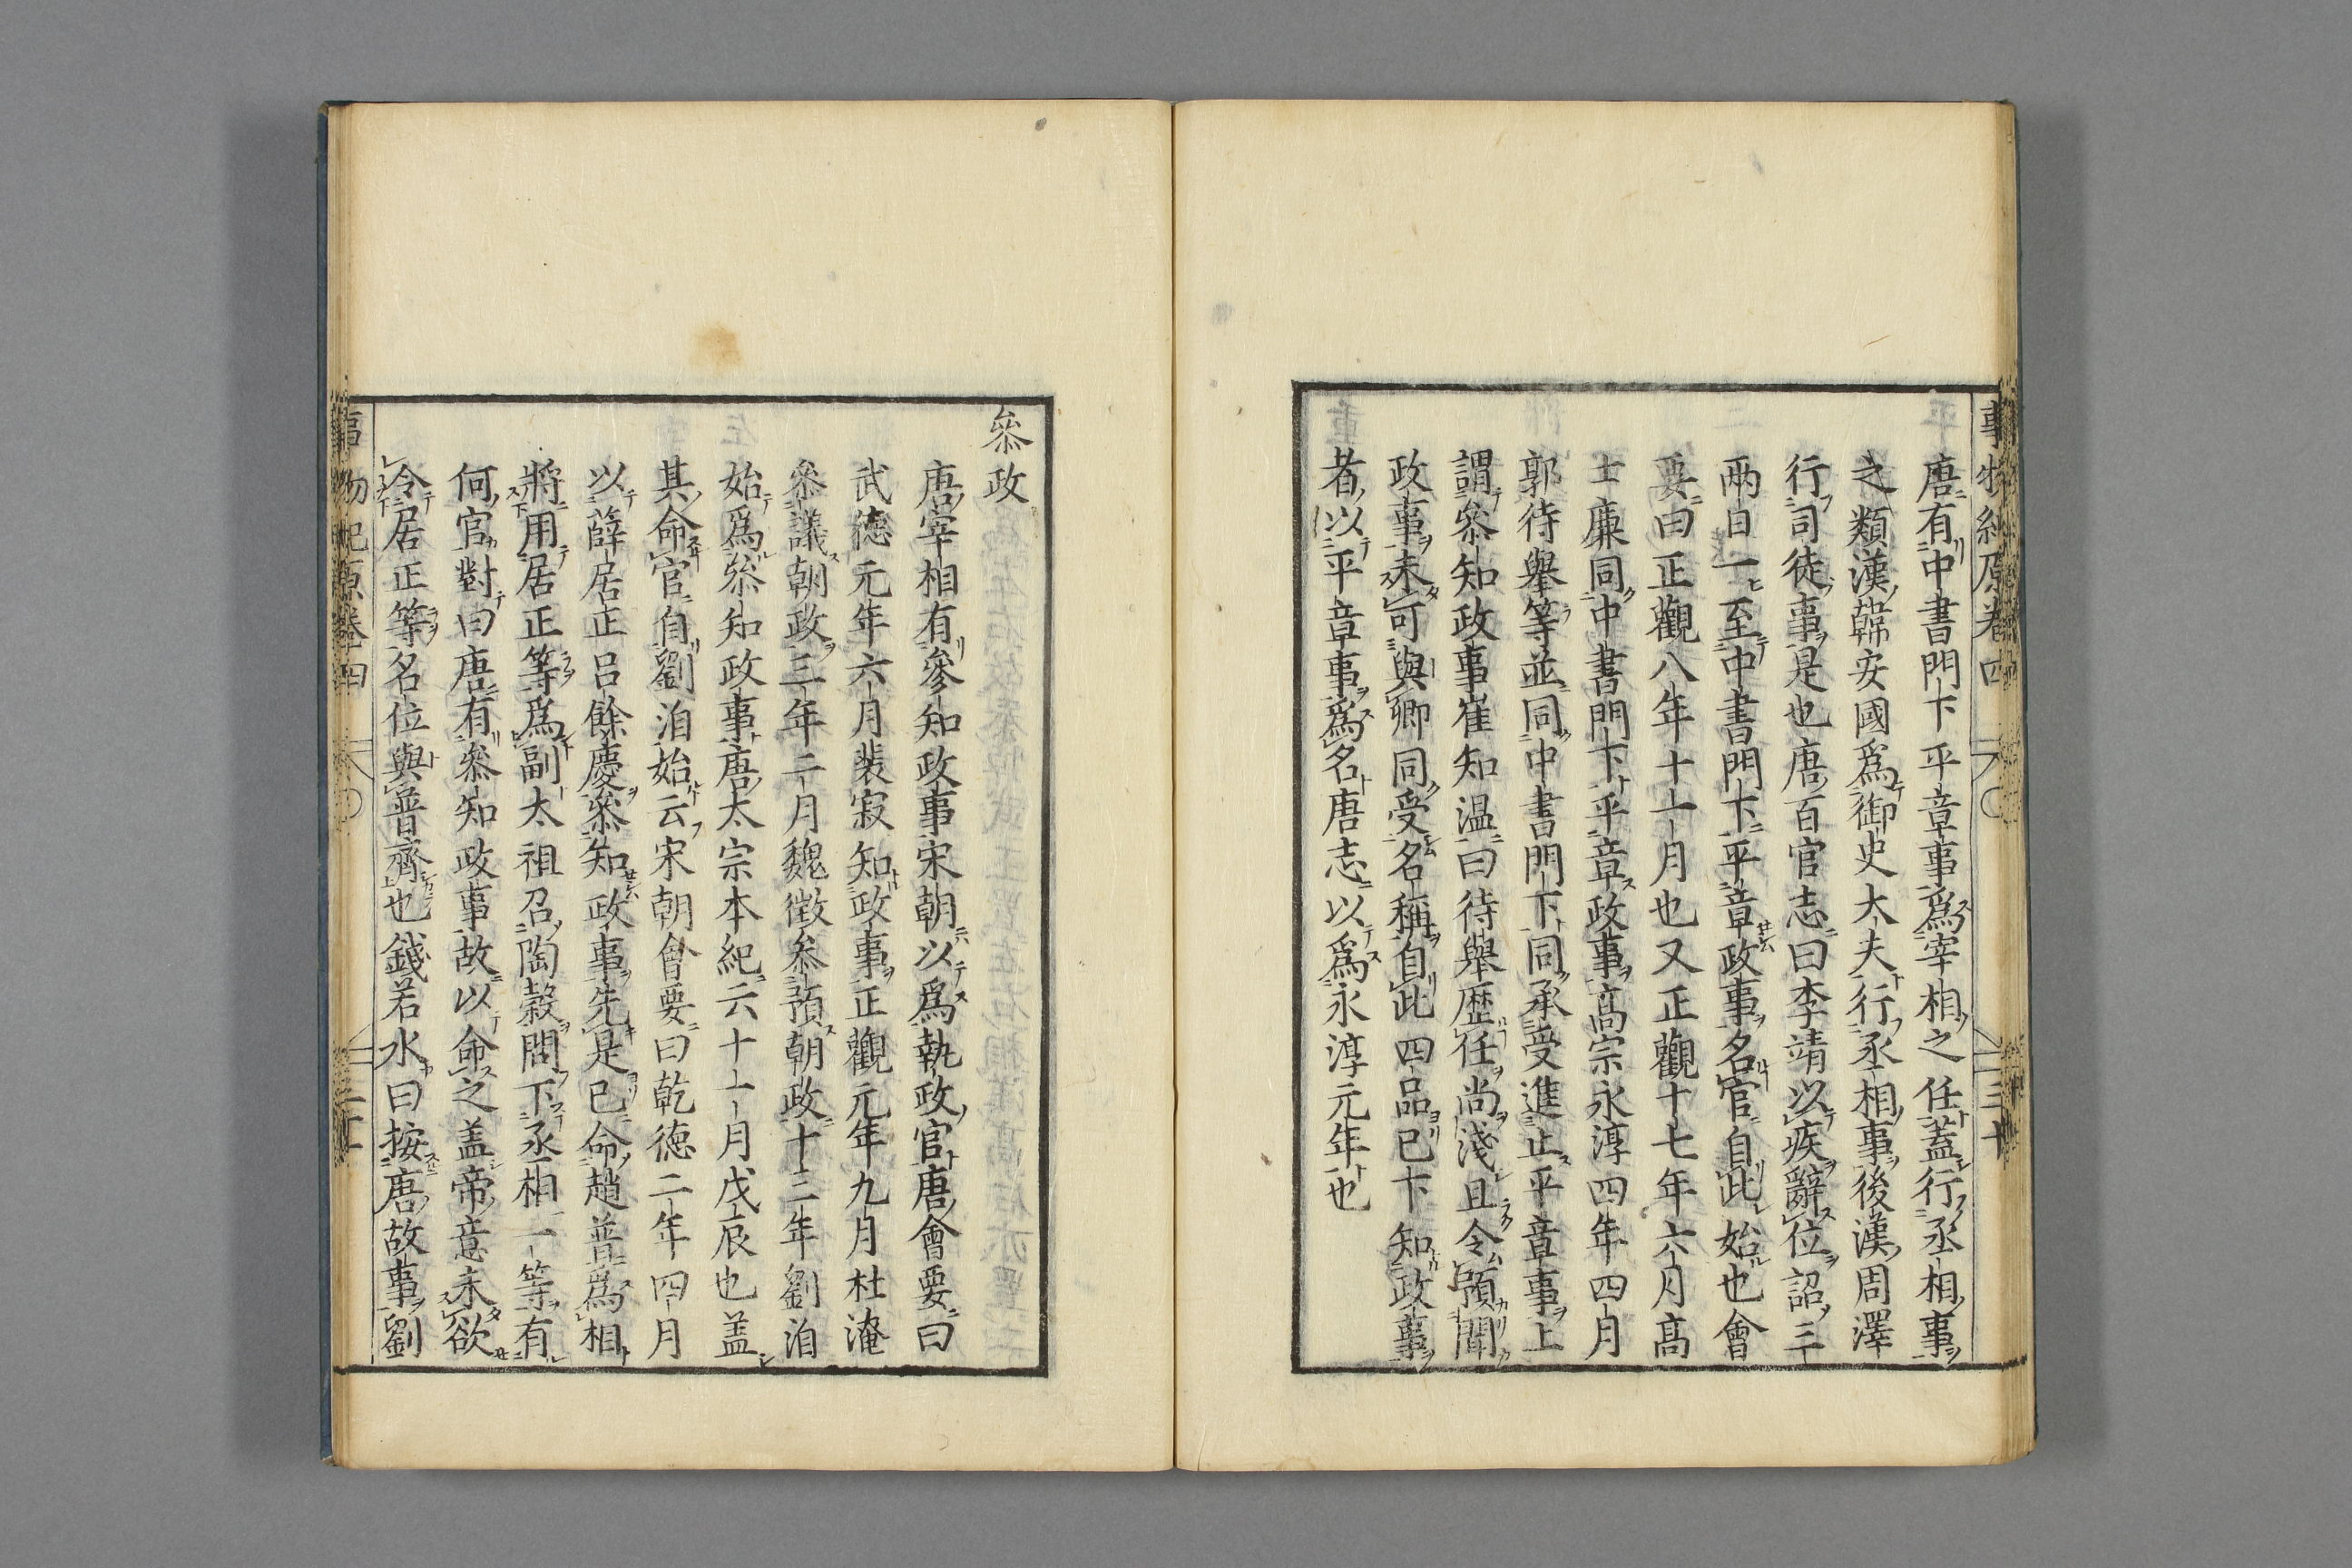 事物紀原卷四 三十
唐有中書門下平章事爲宰相之任蓋行丞相事
之類漢韓安國爲御史大夫行丞相事後漢周澤
行司徒事是也唐百官志曰李靖以疾辭位詔三
兩日一至中書門下平章政事名官自此始也會
要曰正觀八年十一月也又正觀十七年六月高
士廉同中書門下平章政事高宗永淳四年四月
郭待舉等並同中書門下同承受進止平章事上
謂參知政事崔知温曰待舉歴任尚淺且令預聞
政事未可與卿同受名稱自此四品已下知政事
者以平章事爲名唐志以爲永淳元年也
叅政
唐宰相有參知政事宋朝以爲執政官唐會要曰
武德元年六月裴寂知政事正觀元年九月杜淹
叅議朝政三年二月魏徴叅預朝政十三年劉洎
始爲叅知政事唐太宗本紀云十一月戊辰也盖
其命官自劉洎始云宋朝會要曰乾德二年四月
以薛居正呂餘慶叅知政事先是已命趙普爲相
將用居正等爲副太祖召陶穀問下丞相一等有
何官對曰唐有叅知政事故以命之盖帝意未欲
令居正等名位與普齊也錢若水曰按唐故事劉
事物紀原卷四